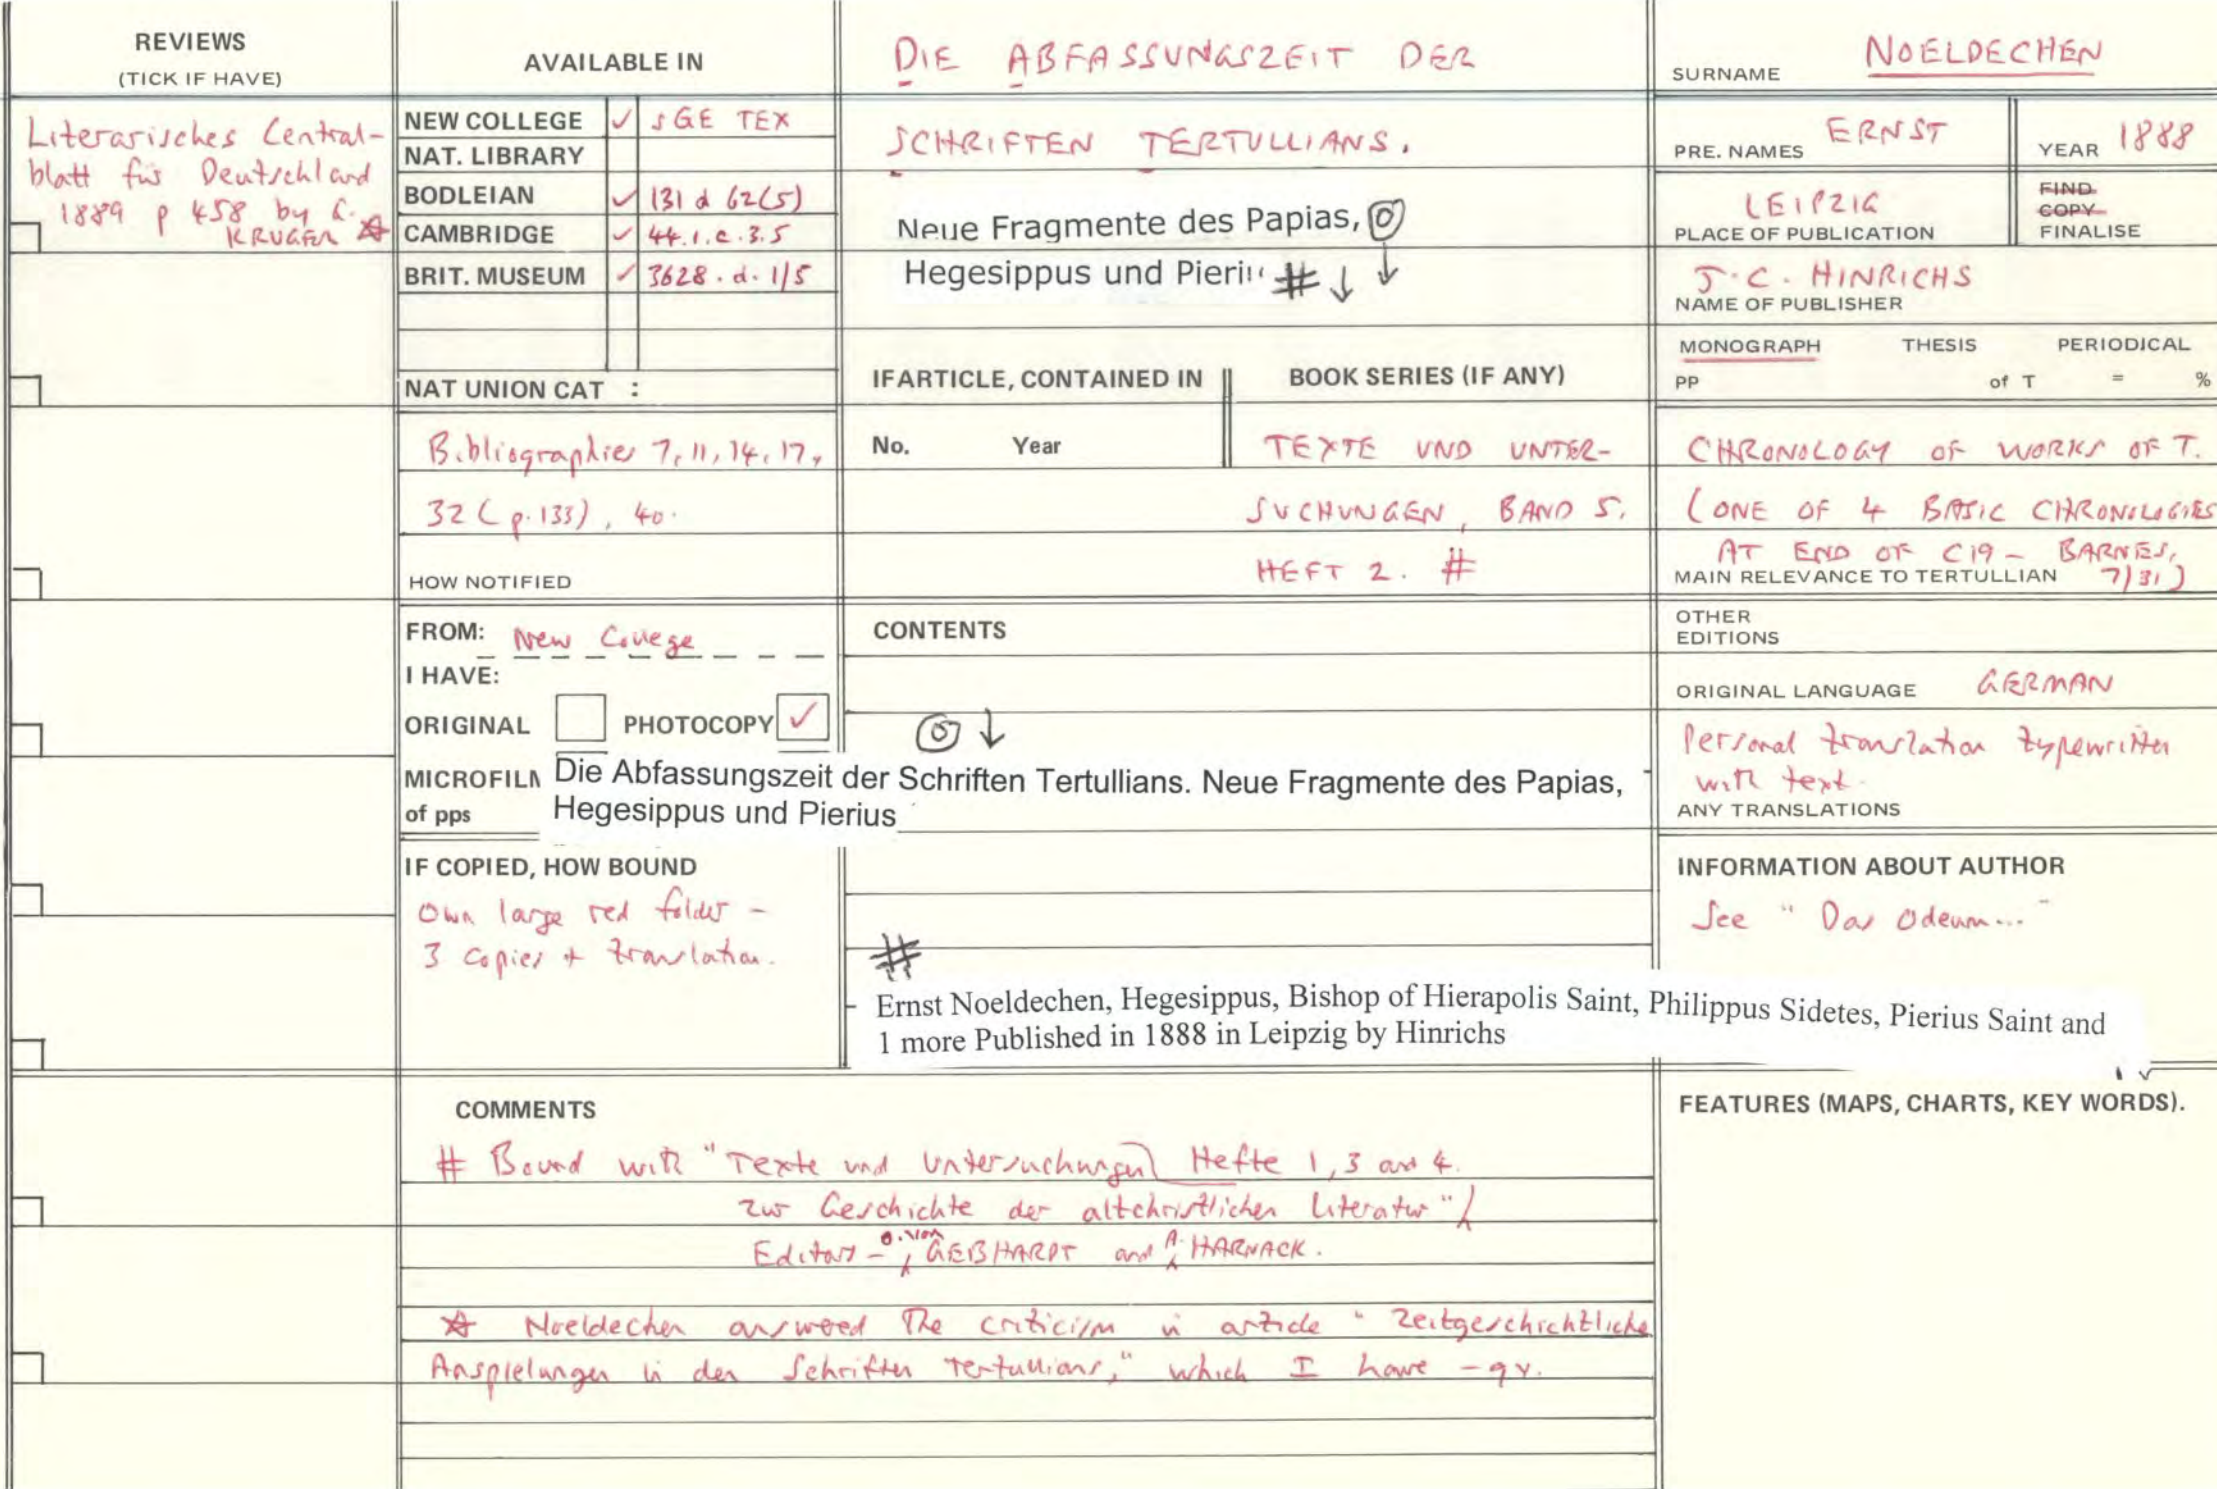 REVIEWS
(TICK IF HAVE)
Literarisches Central-
blatt für Deutschland
1889 p 458 by G.
KRUGER ☆
AVAILABLE IN
NEW COLLEGE ✓ sGE TEX
NAT. LIBRARY
BODLEIAN ✓ 131 d 62(5)
CAMBRIDGE ✓ 44.1.c.3.5
BRIT. MUSEUM ✓ 3628.d.1/5
NAT UNION CAT :
Bibliographies 7, 11, 14, 17,
32 (p.133), 40.
HOW NOTIFIED
FROM: New College
I HAVE:
ORIGINAL PHOTOCOPY ✓
MICROFILM
of pps
IF COPIED, HOW BOUND
Own large red folder –
3 copies + translation.
DIE ABFASSUNGSZEIT DER
SCHRIFTEN TERTULLIANS.
Neue Fragmente des Papias,
Hegesippus und Pieri
# ↓ ↓
IF ARTICLE, CONTAINED IN
BOOK SERIES (IF ANY)
No. Year
TEXTE UND UNTER-
SUCHUNGEN, BAND 5.
HEFT 2. #
CONTENTS
↓
Die Abfassungszeit der Schriften Tertullians. Neue Fragmente des Papias,
Hegesippus und Pierius
#
Ernst Noeldechen, Hegesippus, Bishop of Hierapolis Saint, Philippus Sidetes, Pierius Saint and
1 more Published in 1888 in Leipzig by Hinrichs
SURNAME NOELDECHEN
PRE. NAMES ERNST
YEAR 1888
LEIPZIG
PLACE OF PUBLICATION
FIND
COPY
FINALISE
J.C. HINRICHS
NAME OF PUBLISHER
MONOGRAPH THESIS PERIODICAL
PP of T = %
CHRONOLOGY OF WORKS OF T.
(ONE OF 4 BASIC CHRONOLOGIES
AT END OF C19 – BARNES,
MAIN RELEVANCE TO TERTULLIAN 7/31)
OTHER
EDITIONS
ORIGINAL LANGUAGE GERMAN
Personal translation typewritten
with text.
ANY TRANSLATIONS
INFORMATION ABOUT AUTHOR
See "Das Odeum..."
FEATURES (MAPS, CHARTS, KEY WORDS).
COMMENTS
# Bound with "Texte und Untersuchungen Hefte 1, 3 and 4.
zur Geschichte der altchristlichen Literatur"
Editors – O. von GEBHARDT and A. HARNACK.
☆ Noeldechen answered the criticism in article "Zeitgeschichtliche
Anspielungen in den Schriften Tertullians," which I have – qv.